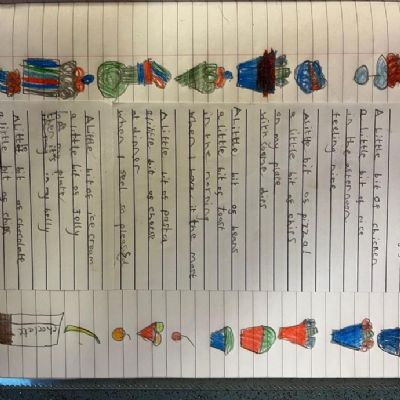 A little bit of chicken
a little bit of rice
in the afternoon
feeling nice
A little bit of pizza!
a little bit of chips
on my place
with some dips
A little bit of beans
a little bit of toast
in the morning
when I want it the most
A little bit of pasta
a little bit of cheese
at dinner
when I feel so pleased
A little bit of ice cream
a little bit of Jelly
on my plate
then it's in my belly
A little bit of chocolate
a little bit of